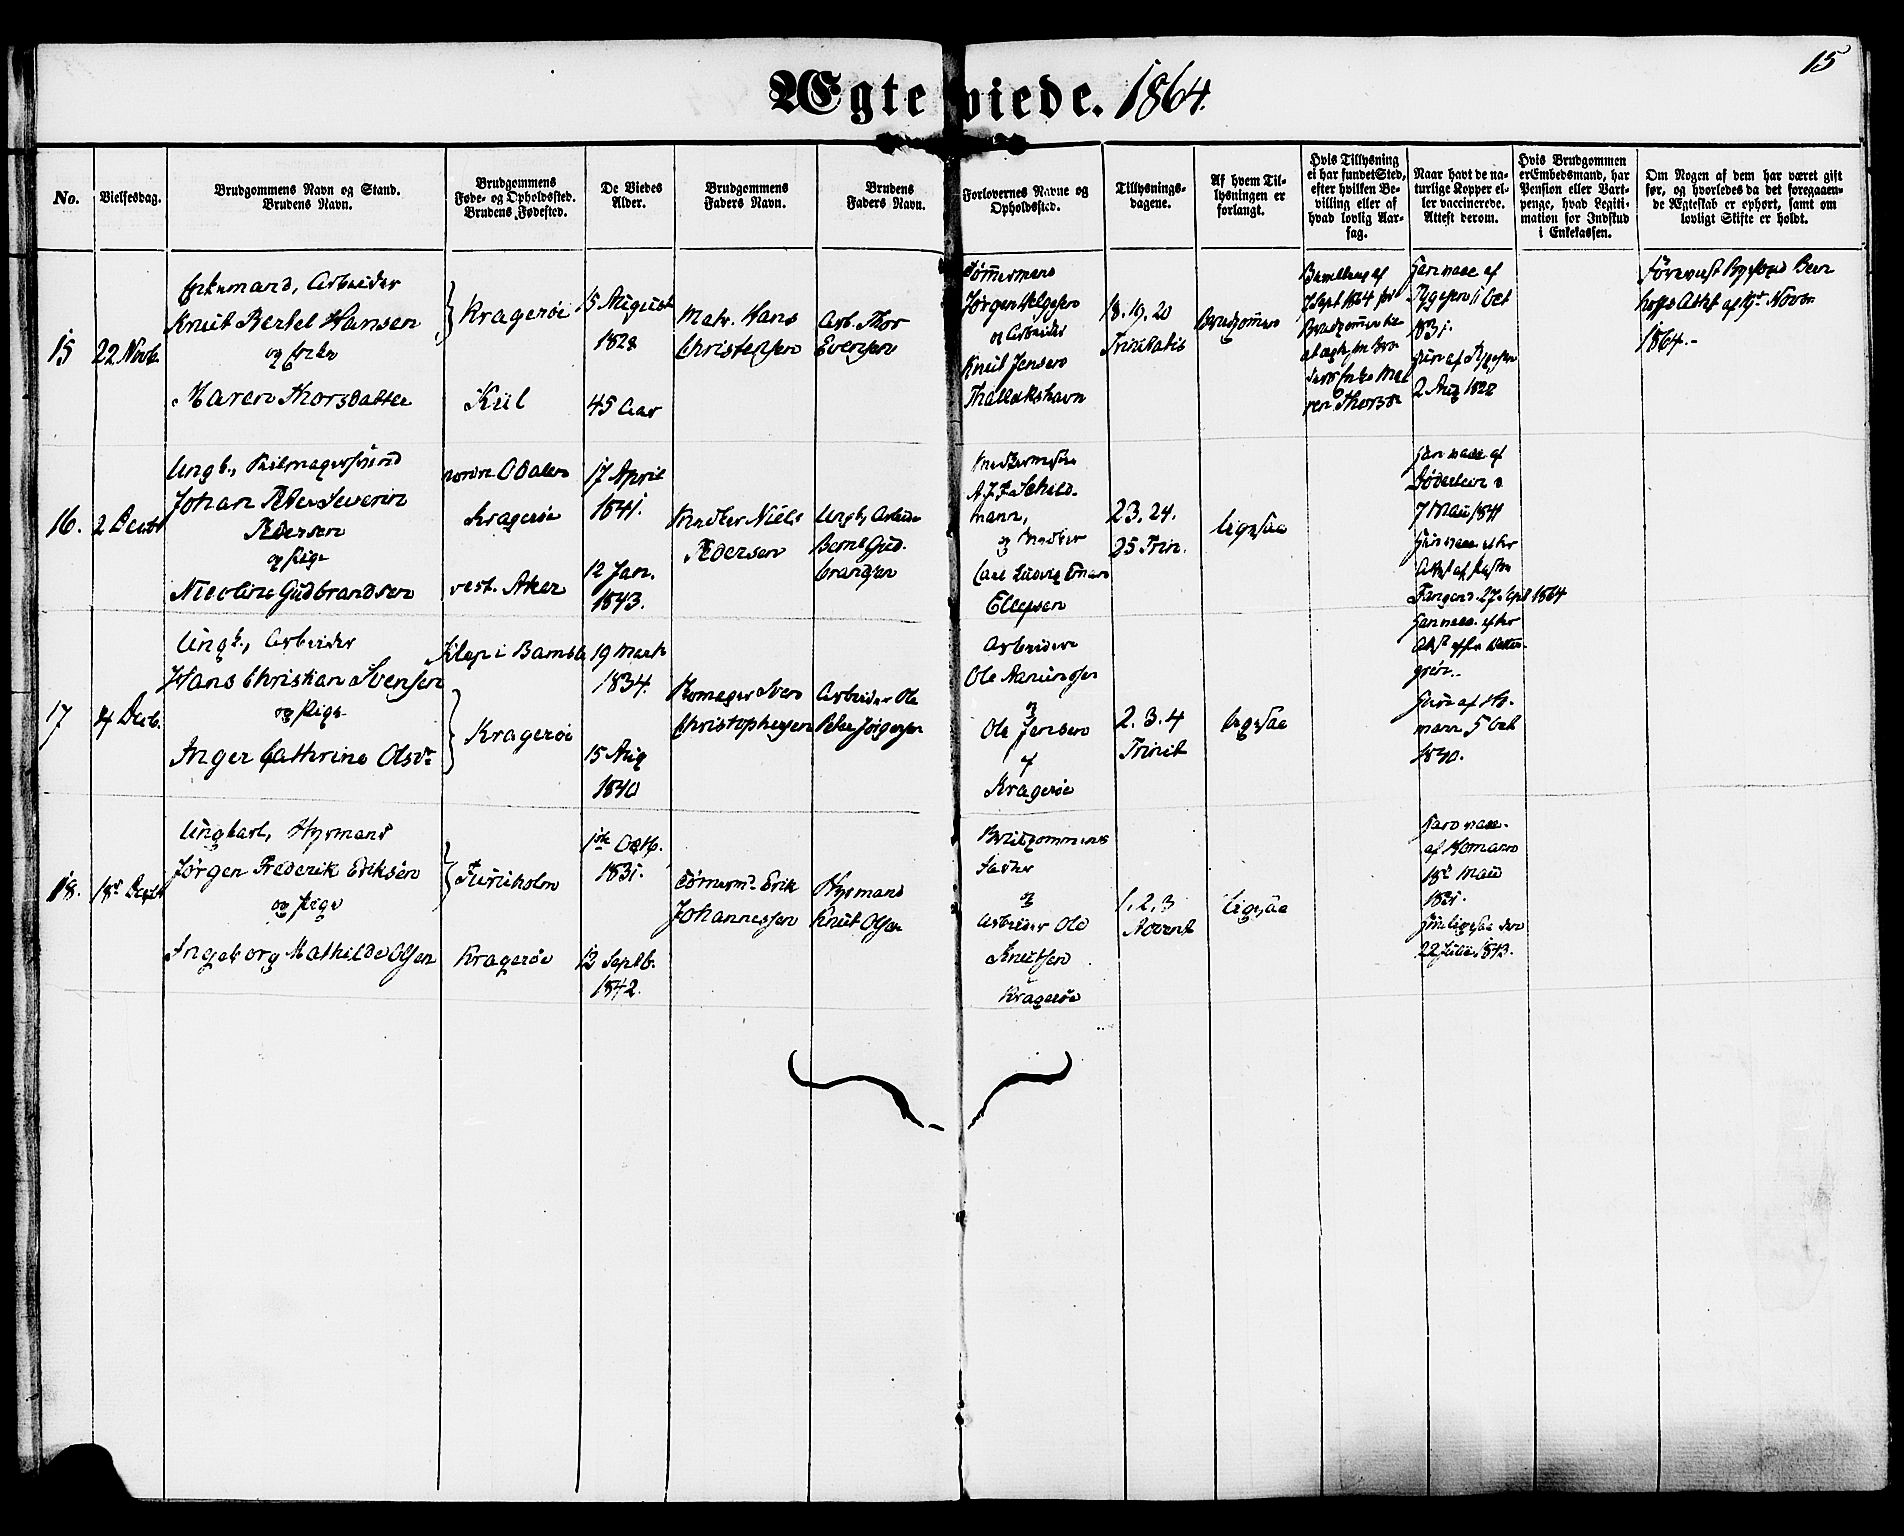 15
Ægteviede. 1864.
No.
Vielsesdag.
Brudgommens Navn og Stand.
Brudens Navn.
Brudgommens
Føde- og Opholdssted.
Brudens Fødested.
De Viedes
Alder.
Brudgommens
Faders Navn.
Brudens
Faders Navn.
Forlovernes Navne og
Opholdssted.
Tillysnings-
dagene.
Af hvem Til-
lysningen er
forlangt.
Hvis Tillysning
ei har fundet Sted,
efter hvilken Be-
villing eller af
hvad lovlig Aar-
sag.
Naar havt de na-
turlige Kopper el-
ler vaccinerede.
Attest derom.
Hvis Brudgommen
er Embedsmand, har
Pension eller Vart-
penge, hvad Legiti-
mation for Indskud
i Enkekassen.
Om Nogen af dem har været gift
før, og hvorledes da det foregaaen-
de Ægteskab er ophørt, samt om
lovligt Skifte er holdt.
15
22 Novb.
Enkemand, Arbeider
Knut Bertel Hansen
og Enke
Maren Thorsdatter
Kragerøe
Kiil
15 August
1828
45 Aar
Matr. Hans
Christensen
Arb. Thor
Evensen
Tømmermand
Jørgen Helgesen
og Arbeider
Knut Jensen
Thallakshavn
18. 19. 20
Trinitatis
Brudgommen
Bevilling af
7 Sept 1824
Enke Ma
ren Thorsd
Han vacc af
Tygesen 11 Oct
1831.
Hun af Tygesen
2 Aug 1828
Attest af
Novbr
1864.-
16.
2 Decbr
Ungk., Seilmagersvend
Johan Peder Severin
Pedersen
og Pige
Nicoline Gudbrandsen
nordre Odalen
Kragerøe
vest. Aker
17 April
1841.
12 Jan.
1843.
Snedker Niels
Pedersen
Ungk. Arbeider
Bernt Gud-
brandsen
Snedkermester
A. F. Schild-
mann,
og Snedker
Carl Ludvig Einar
Ellefsen
23. 24.
25 Trin.
ligesaa
Han vacc af
Døderlein
7 Mai 1841
Hun vacc efter
Attest af
Tangend. 27 Sept 1864
17
4 Decb.
Ungk., Arbeider
Hans Christian Svensen
og Pige
Inger Cathrine Olsdr
Klep i Bamble
Kragerøe
19 Marts
1834.
15 Aug
1840
Svend
Christophersen
Arbeider Ole
Peter Jørgensen
Arbeidere
Ole Aanundsen
og
Ole Jensen
af
Kragerøe
2. 3. 4
Trinit
ligesaa
Han vacc. efter
Att. af
Hun af Ho-
mann 5 Oct
1840.
18.
18de Decbr
Ungkarl, Hyrmand
Jørgen Frederik Eriksen
og Pige
Ingeborg Mathilde Olsen
Furuholm
Kragerøe
1ste Octb.
1831.
12 Septb.
1842.
Tømmermd. Erik
Johannessen
Hyrmand
Knut Olsen
Brudgommens
Fader
og
Arbeider Ole
Knutsen
Kragerøe
1. 2. 3
Advent
ligesaa
Han vacc.
af Homann
18de Mai
Hun ligesaa den
22 Julii 1843.